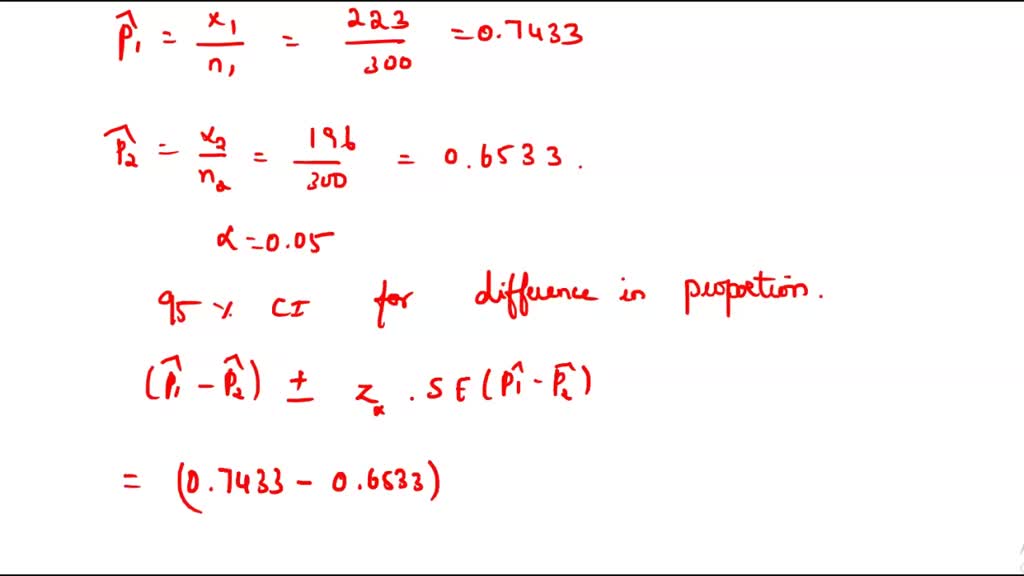 p̂₁ = x₁/n₁ = 223/300 = 0.7433
p̂₂ = x₂/n₂ = 196/300 = 0.6533.
α = 0.05
95 % CI for difference in proportion.
(p̂₁ - p̂₂) ± zα . SE(p̂₁ - p̂₂)
= (0.7433 - 0.6533)